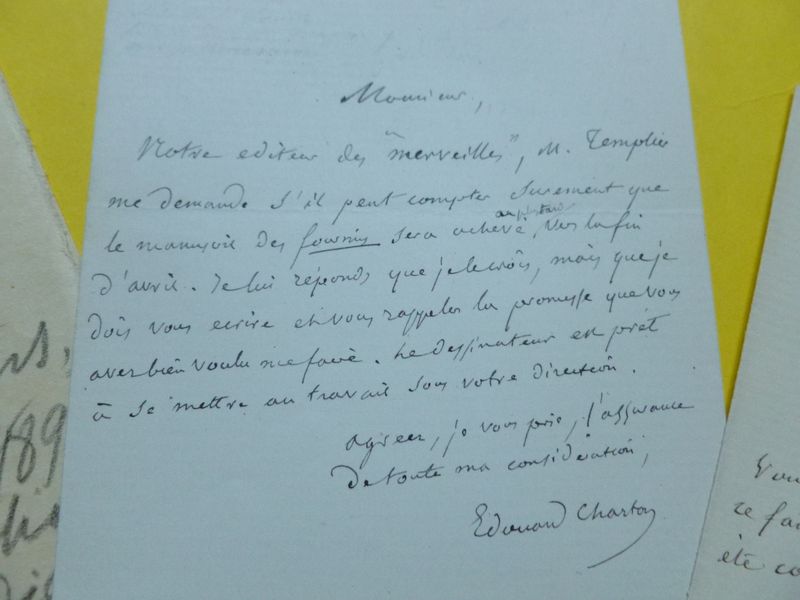 Monsieur,
Notre editeur des "merveilles", M. Templier
me demande s'il peut compter surement que
le manuscrit des fourmis sera achevé, vers la fin
au plus tard
d'avril. Je lui réponds que je le crois, mais que je
dois vous ecrire et vous rappeler la promesse que vous
avez bien voulu me faire. Le dessinateur est prêt
à se mettre au travail sous votre direction.
agréez, je vous prie, l'assurance
de toute ma considération,
Edouard Charton
189
Vou
ce fai
été co